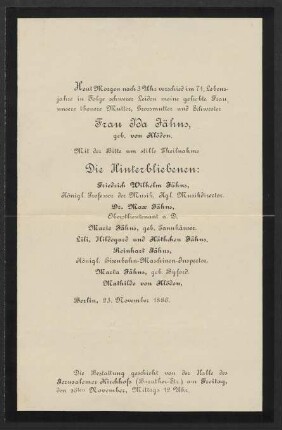 Heut Morgen nach 3 Uhr verschied im 71. Lebens-
jahre in Folge schwerer Leiden meine geliebte Frau,
unsere theure Mutter, Grossmutter und Schwester
Frau Ida Jähns,
geb. von Klöden.
Mit der Bitte um stille Theilnahme
Die Hinterbliebenen:
Friedrich Wilhelm Jähns,
Königl. Professor der Musik, Kgl. Musikdirector.
Dr. Max Jähns,
Oberstlieutenant a. D.
Marie Jähns, geb. Tannhäuser.
Lili, Hildegard und Käthchen Jähns.
Reinhard Jähns,
Königl. Eisenbahn-Maschinen-Inspector.
Maria Jähns, geb.
Mathilde von Klöden.
Berlin, 23. November 1886.
Die Bestattung geschieht von der Halle des
Jerusalemer Kirchhofs am Freitag,
den 26ten November, Mittags 12 Uhr.